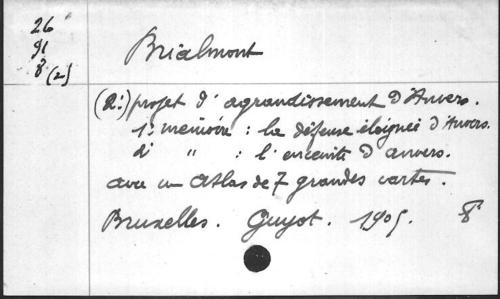 26
91
8 (2)
Brialmont
(2:) projet d'agrandissement d'Anvers.
1: mémoire : la défense éloignée d'Anvers.
2: " : l'enceinte d'anvers.
avec un Atlas de 7 grandes cartes.
Bruxelles. Guyot. 1905. 8°